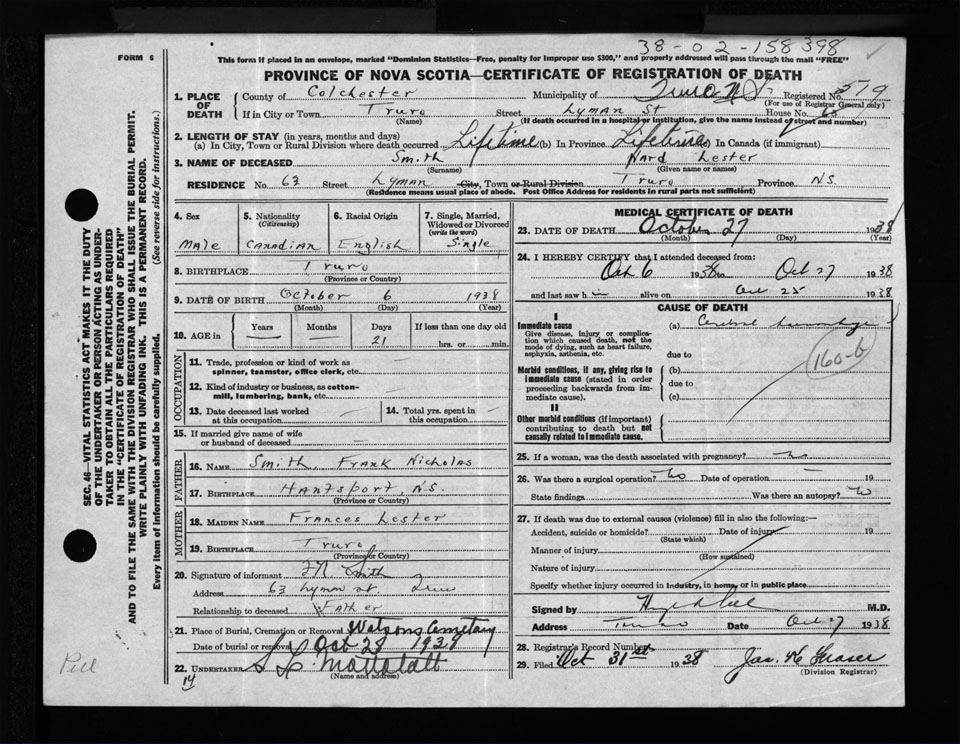 38-02-158398
FORM 6
This form if placed in an envelope, marked "Dominion Statistics—Free, penalty for improper use $300," and properly addressed will pass through the mail "FREE"
PROVINCE OF NOVA SCOTIA—CERTIFICATE OF REGISTRATION OF DEATH
1. PLACE OF DEATH
County of Colchester Municipality of Truro N.S. Registered No. 519
(For use of Registrar General only)
If in City or Town Truro Street Lyman St House No. 63
(Name) (If death occurred in a hospital or institution, give the name instead of street and number)
2. LENGTH OF STAY (in years, months and days)
(a) In City, Town or Rural Division where death occurred Lifetime (b) In Province Lifetime (c) In Canada (if immigrant)
3. NAME OF DECEASED Smith Ward Lester
(Surname) (Given name or names)
RESIDENCE No. 63 Street Lyman City, Town or Rural Division Truro Province N.S.
(Residence means usual place of abode. Post Office Address for residents in rural parts not sufficient)
4. Sex
male
5. Nationality
(Citizenship)
Canadian
6. Racial Origin
English
7. Single, Married, Widowed or Divorced
(write the word)
Single
8. BIRTHPLACE Truro
(Province or Country)
9. DATE OF BIRTH October 6 1938
(Month) (Day) (Year)
10. AGE in Years Months Days If less than one day old
21 hrs. or min.
OCCUPATION
11. Trade, profession or kind of work as
spinner, teamster, office clerk, etc.
12. Kind of industry or business, as cotton-
mill, lumbering, bank, etc.
13. Date deceased last worked
at this occupation
14. Total yrs. spent in
this occupation
15. If married give name of wife
or husband of deceased
FATHER
16. NAME Smith, Frank Nicholas
17. BIRTHPLACE Hantsport, N.S.
(Province or Country)
MOTHER
18. MAIDEN NAME Frances Lester
19. BIRTHPLACE Truro
(Province or Country)
20. Signature of informant F N Smith
Address 63 Lyman st. Truro
Relationship to deceased Father
21. Place of Burial, Cremation or Removal Watsons Cemetary
Date of burial or removal Oct 28 1938
22. UNDERTAKER
(Name and address)
14
MEDICAL CERTIFICATE OF DEATH
23. DATE OF DEATH October 27 1938
(Month) (Day) (Year)
24. I HEREBY CERTIFY that I attended deceased from:
Oct 6 1938 to Oct 27 1938
and last saw h im alive on Oct 25 1938
CAUSE OF DEATH
I
Immediate cause
Give disease, injury or complica-
tion which caused death, not the
mode of dying, such as heart failure,
asphyxia, asthenia, etc.
(a) Cerebral
due to
160-b
Morbid conditions, if any, giving rise to
immediate cause (stated in order
proceeding backwards from im-
mediate cause).
(b)
due to
(c)
II
Other morbid conditions (if important)
contributing to death but not
causally related to immediate cause.
25. If a woman, was the death associated with pregnancy? no
26. Was there a surgical operation? no Date of operation 19
State findings Was there an autopsy? no
27. If death was due to external causes (violence) fill in also the following:—
Accident, suicide or homicide? Date of injury 19
(State which)
Manner of injury
(How sustained)
Nature of injury
Specify whether injury occurred in industry, in home, or in public place
Signed by M.D.
Address Truro Date Oct 27 1938
28. Registrar's Record Number
29. Filed Oct 31st 1938 Jas. K Fraser
(Division Registrar)
SEC. 46—VITAL STATISTICS ACT MAKES IT THE DUTY
OF THE UNDERTAKER OR PERSON ACTING AS UNDER-
TAKER TO OBTAIN ALL THE PARTICULARS REQUIRED
IN THE "CERTIFICATE OF REGISTRATION OF DEATH"
AND TO FILE THE SAME WITH THE DIVISION REGISTRAR WHO SHALL ISSUE THE BURIAL PERMIT.
WRITE PLAINLY WITH UNFADING INK. THIS IS A PERMANENT RECORD.
Every item of information should be carefully supplied. (See reverse side for instructions.)